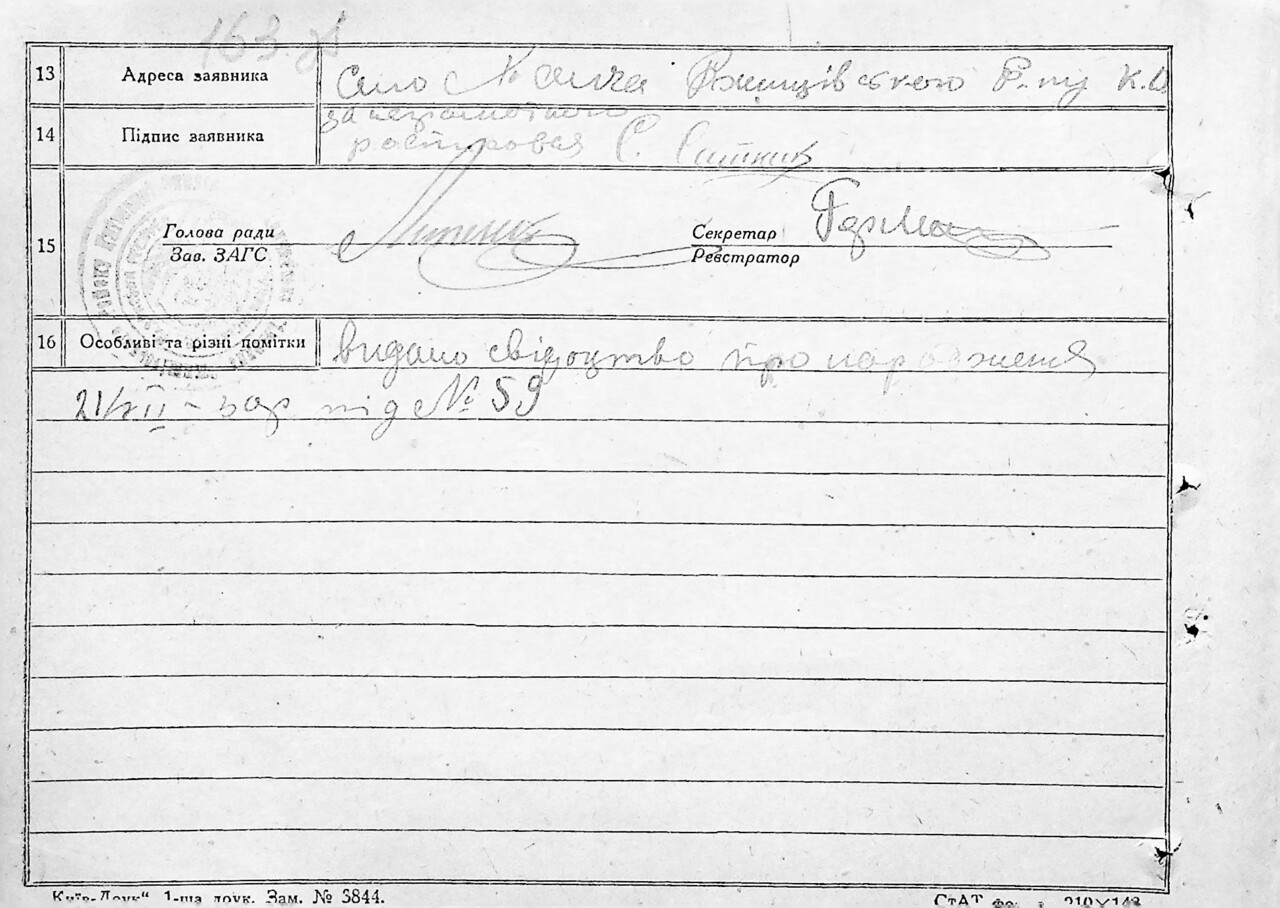 163
13 Адреса заявника Село Ржищівського Р-ну К.О
14 Підпис заявника за неграмотного
росписовая С. Ситник
15 Голова ради Секретар
Зав. ЗАГС Реєстратор
16 Особливі та різні помітки видано свідоцтво про народження
21/VII - під № 59
Київ-Друк" 1-ша друк. Зам. № 3844.
СтАТ 210×148